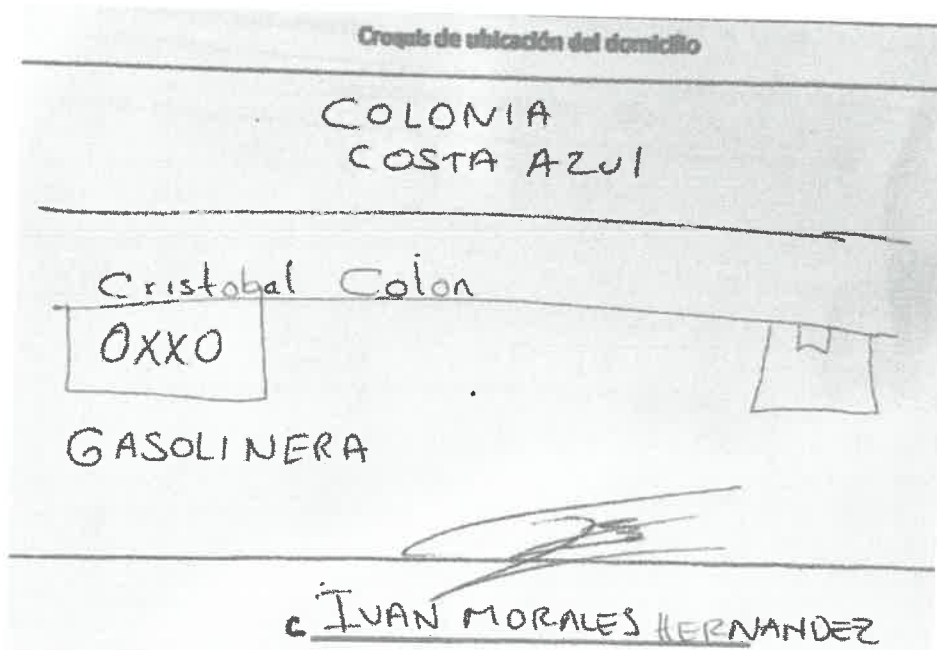 Croquis de ubicación del domicilio
COLONIA
COSTA AZUl
Cristobal Colon
OXXO
GASOLINERA
c IVAN MORALES HERNANDEZ